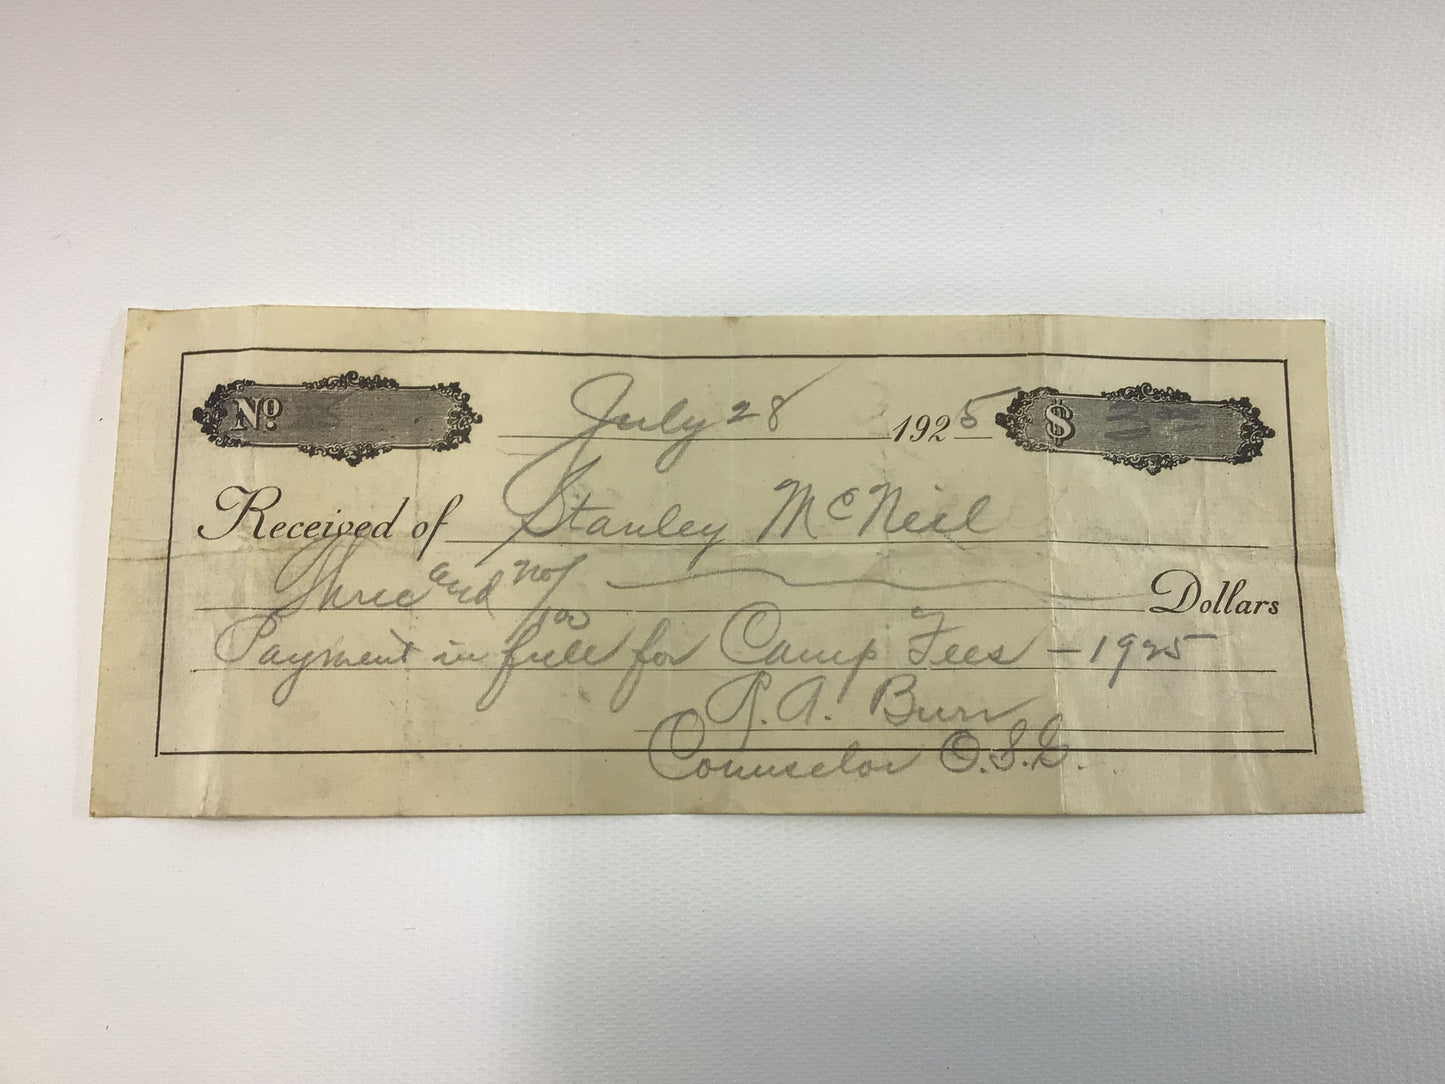 No.
July 28 1925 $ 3 00
Received of Stanley McNeil
Three and no/100 Dollars
Payment in full for Camp Fees - 1925
R. A. Burr
Counselor O.S.L.